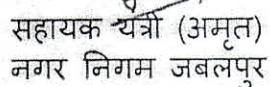 सहायक यंत्री (अमृत)
नगर निगम जबलपुर